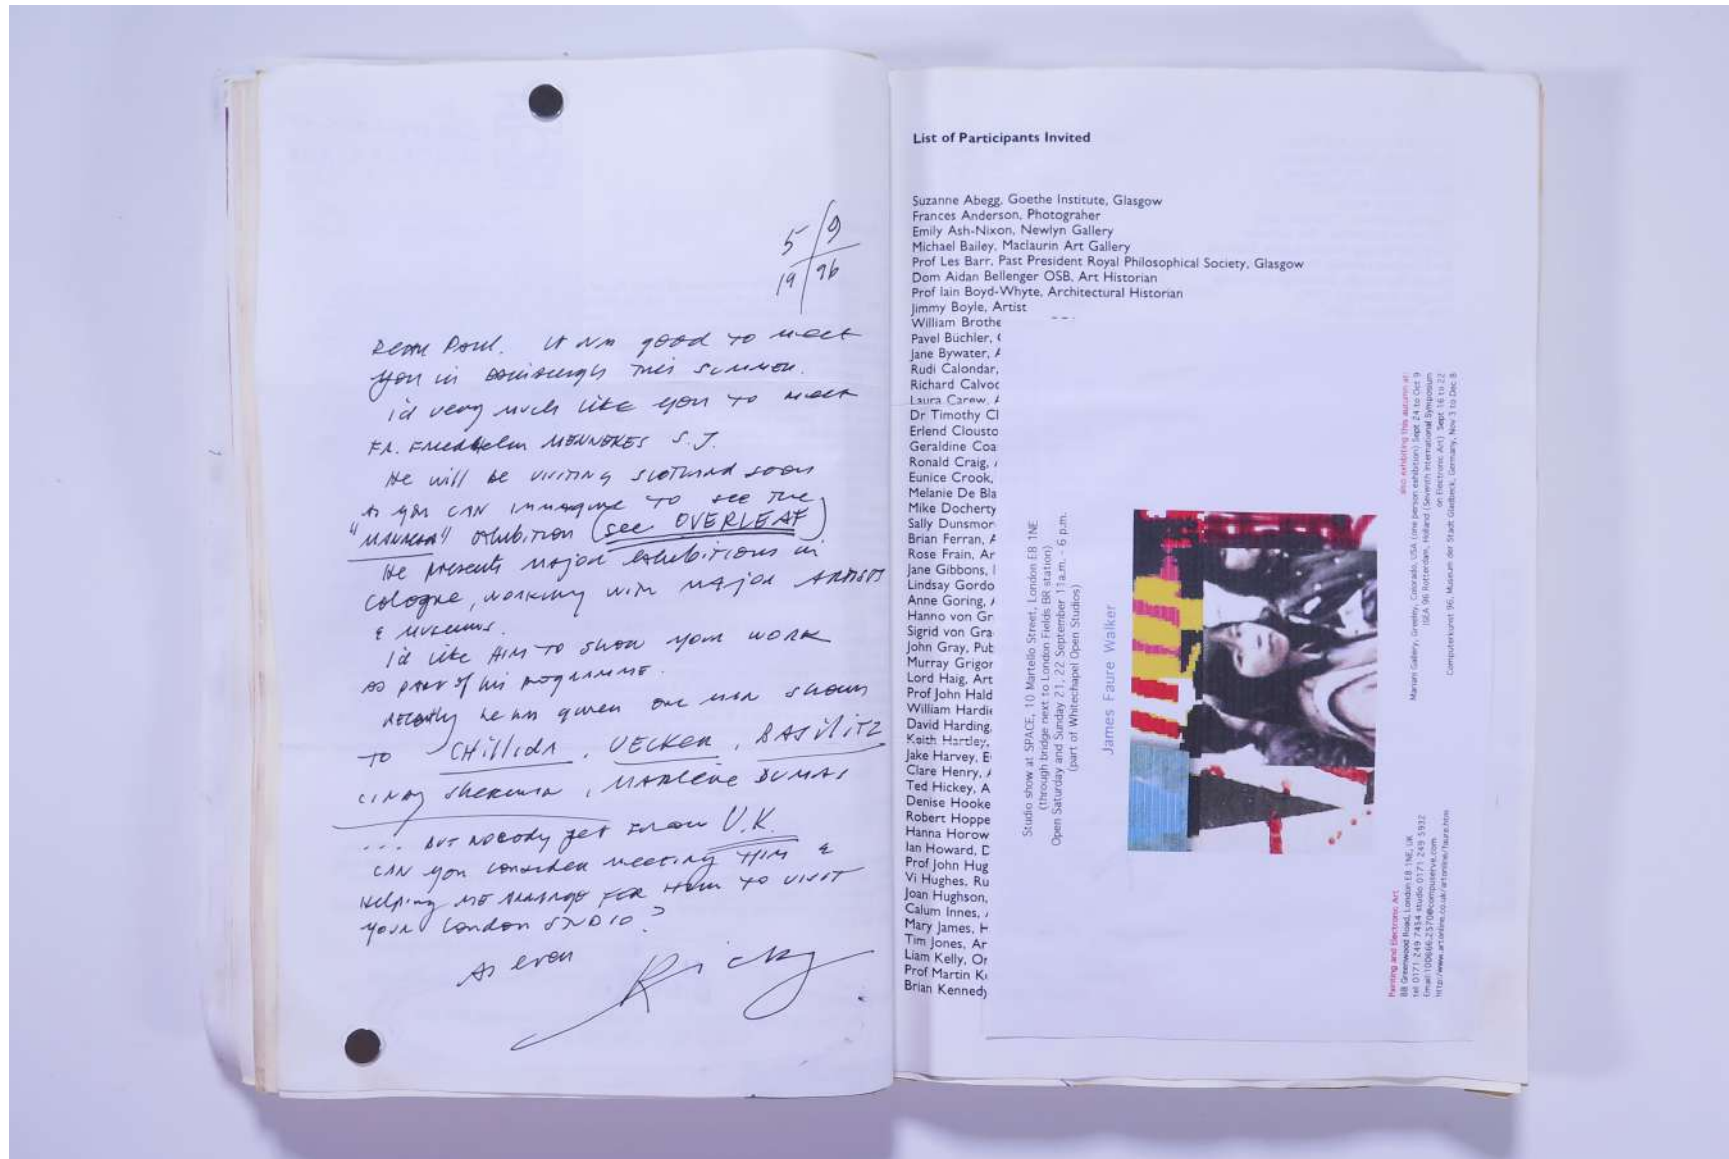 5/9
19/96
Dear Paul. It was good to meet
you in Edinburgh this summer.
i'd very much like you to meet
FR. Friedhelm MENNEKES S.J.
He will be visiting Scotland soon
as you can immagine to see the
"                " exhibition (see OVERLEAF)
He presents major exhibitions in
Cologne, working with major ARTISTS
& museums.
i'd like HIM TO show your work
as part of his programme.
recently he has given one man shows
TO CHillida, UECKER, BASilitz
cindy sherman, MARlene DUMAS
... BUT NOBODY yet from U.K.
CAN you consider meeting HIM &
Helping ME ARRANGE FOR HIM TO VISIT
your London STUDIO?
As ever
Ricky
List of Participants Invited
Suzanne Abegg, Goethe Institute, Glasgow
Frances Anderson, Photograher
Emily Ash-Nixon, Newlyn Gallery
Michael Bailey, Maclaurin Art Gallery
Prof Les Barr, Past President Royal Philosophical Society, Glasgow
Dom Aidan Bellenger OSB, Art Historian
Prof Iain Boyd-Whyte, Architectural Historian
Jimmy Boyle, Artist
William Brothe
Pavel Büchler,
Jane Bywater, A
Rudi Calondar,
Richard Calvoc
Laura Carew, A
Dr Timothy Cl
Erlend Clousto
Geraldine Coa
Ronald Craig,
Eunice Crook,
Melanie De Bla
Mike Docherty
Sally Dunsmor
Brian Ferran, A
Rose Frain, Ar
Jane Gibbons,
Lindsay Gordo
Anne Goring, A
Hanno von Gr
Sigrid von Gra
John Gray, Pub
Murray Grigor
Lord Haig, Art
Prof John Hald
William Hardie
David Harding,
Keith Hartley,
Jake Harvey, E
Clare Henry, A
Ted Hickey, A
Denise Hooke
Robert Hoppe
Hanna Horow
Ian Howard, D
Prof John Hug
Vi Hughes, Ru
Joan Hughson,
Calum Innes,
Mary James, H
Tim Jones, Ar
Liam Kelly, Or
Prof Martin K
Brian Kennedy
Studio show at SPACE, 10 Martello Street, London E8 1NE
(through bridge next to London Fields BR station)
Open Saturday and Sunday 21, 22 September 11a.m. - 6 p.m.
(part of Whitechapel Open Studios)
James Faure Walker
Painting and Electronic Art
88 Greenwood Road, London E8 1NE, UK
tel 0171 249 7454 studio 0171 249 5932
Email:100666.2570@compuserve.com
http://www.artonline.co.uk/artonline/faure.htm
also exhibiting this autumn at:
Mariani Gallery, Greeley, Colorado, USA (one person exhibition) Sept 24 to Oct 9
ISEA 96 Rotterdam, Holland (Seventh International Symposium
on Electronic Art) Sept 16 to 22
Computerkunst 96, Museum der Stadt Gladbeck, Germany, Nov 3 to Dec 8